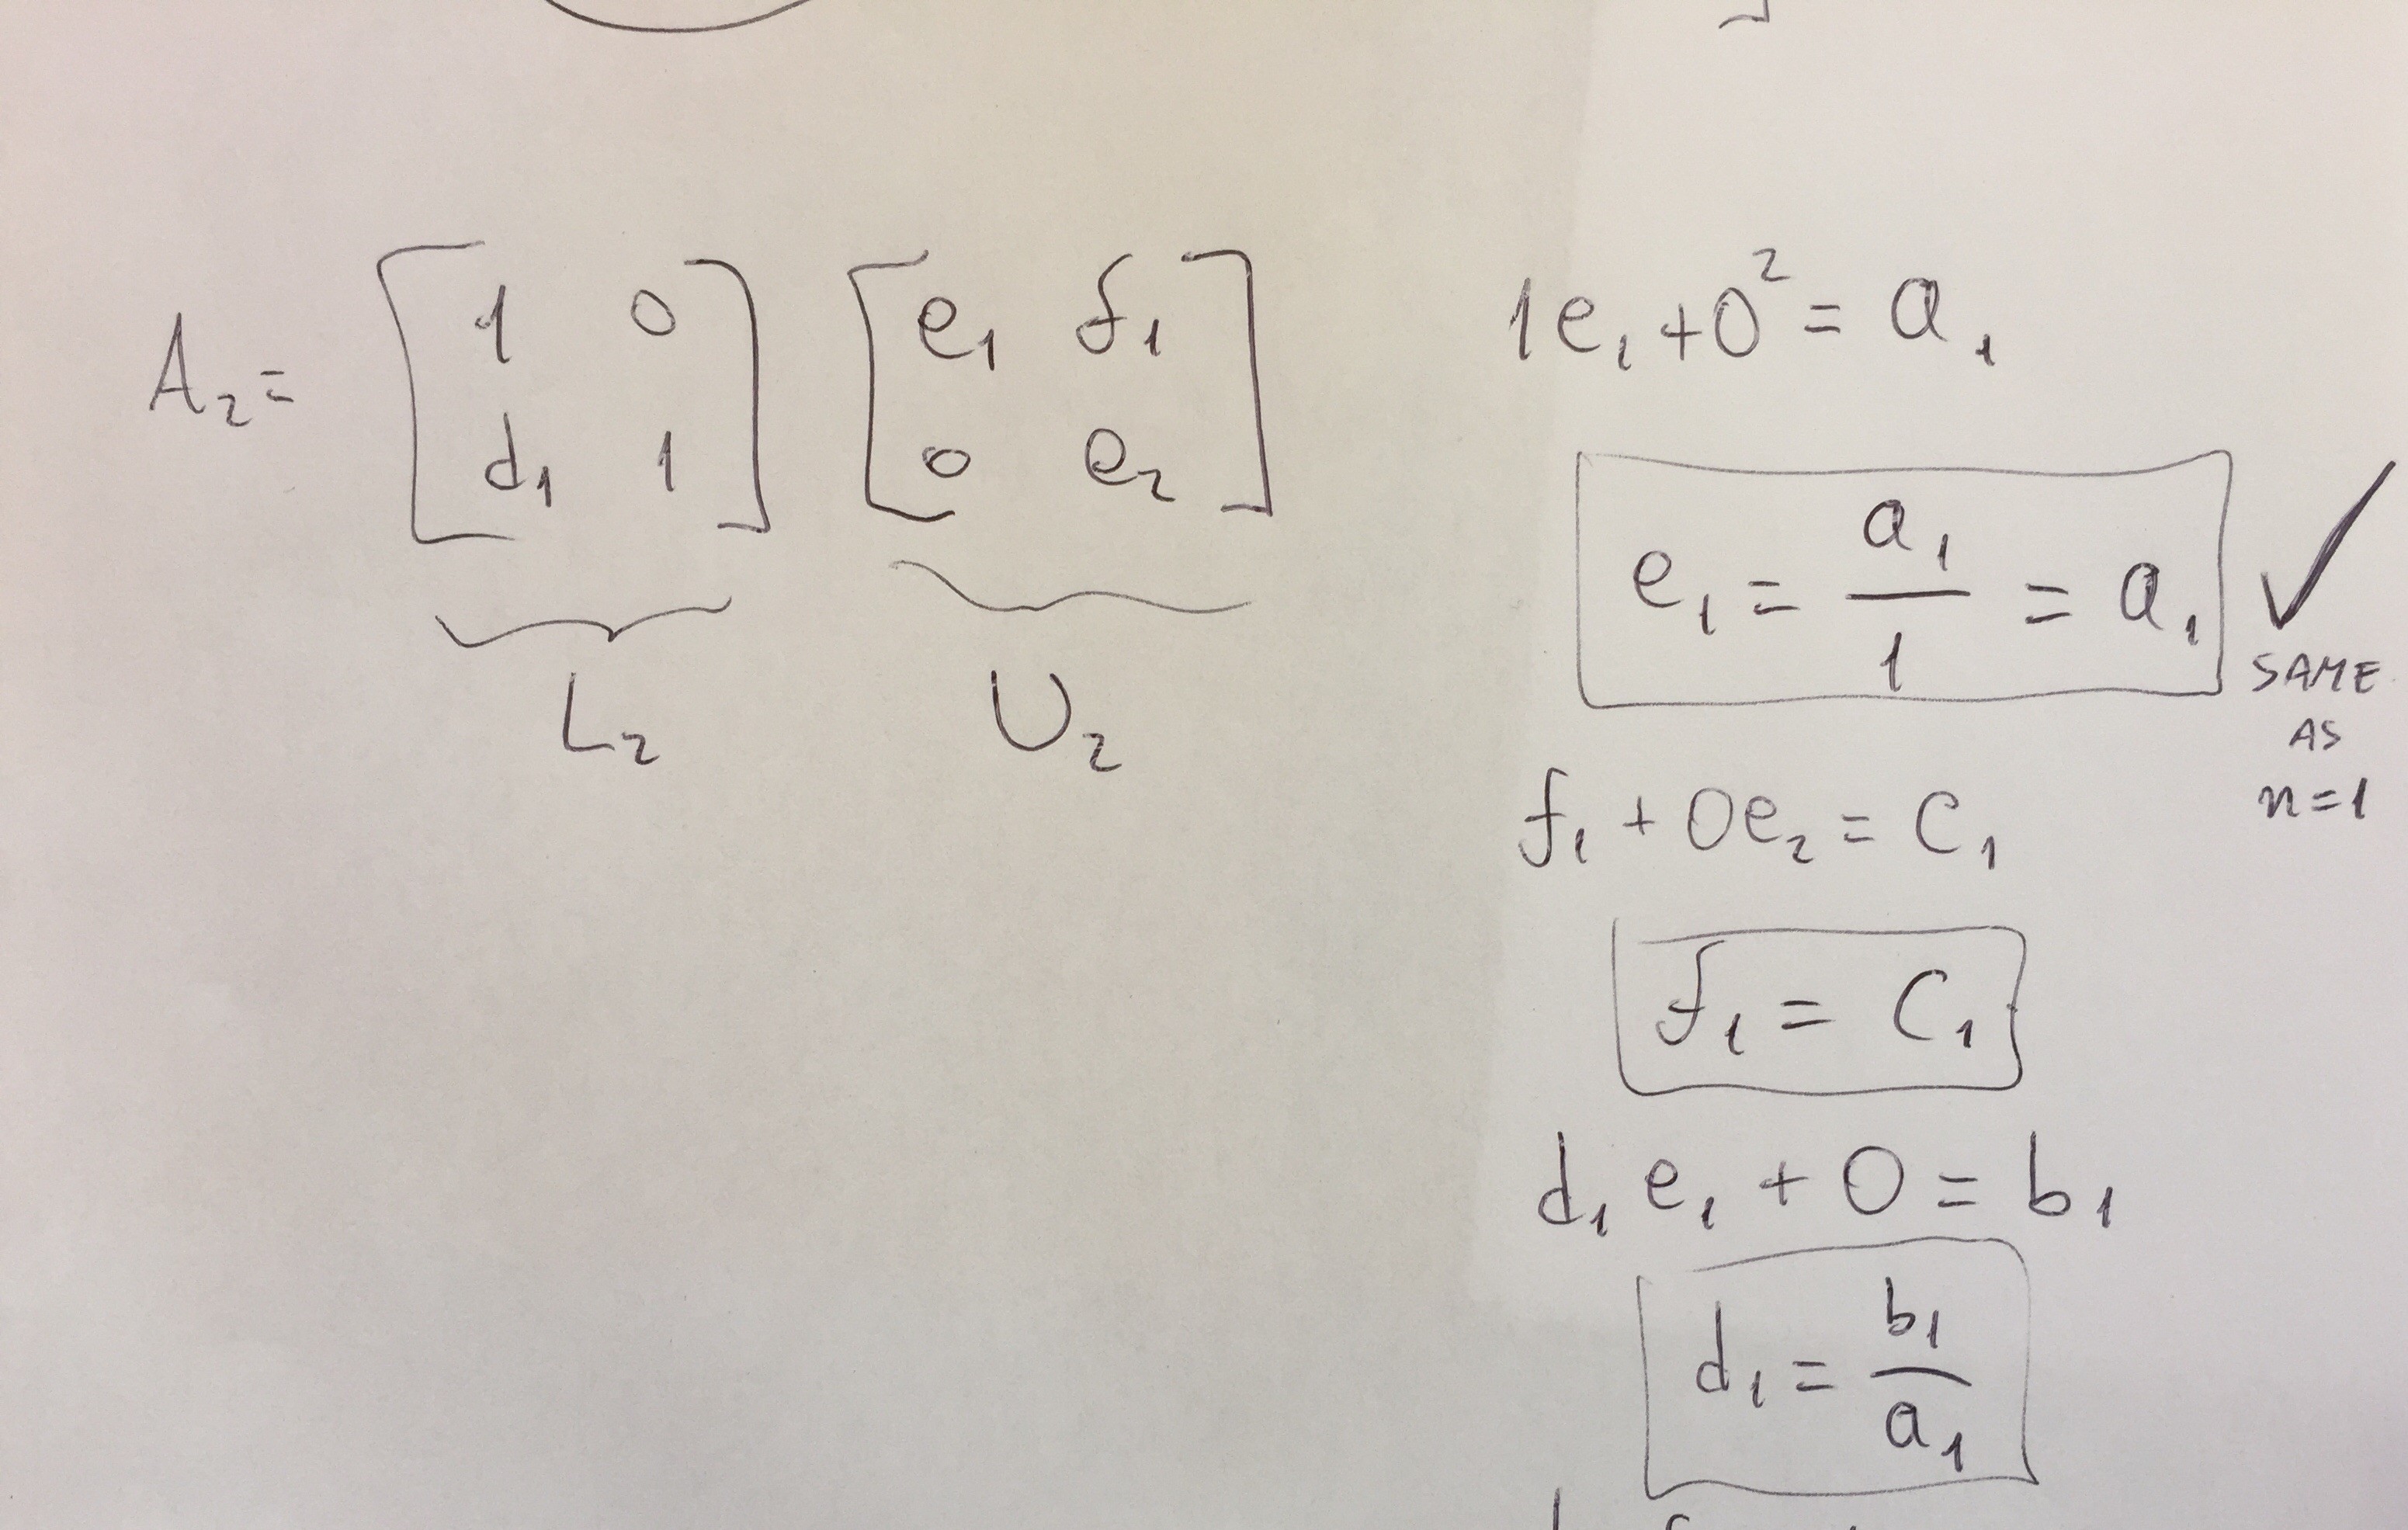 A₂ = [1 0; d₁ 1] [e₁ f₁; 0 e₂]
L₂ U₂
1e₁ + 0² = a₁
e₁ = a₁/1 = a₁ ✓
SAME
AS
n=1
f₁ + 0e₂ = c₁
f₁ = c₁
d₁ e₁ + 0 = b₁
d₁ = b₁/a₁